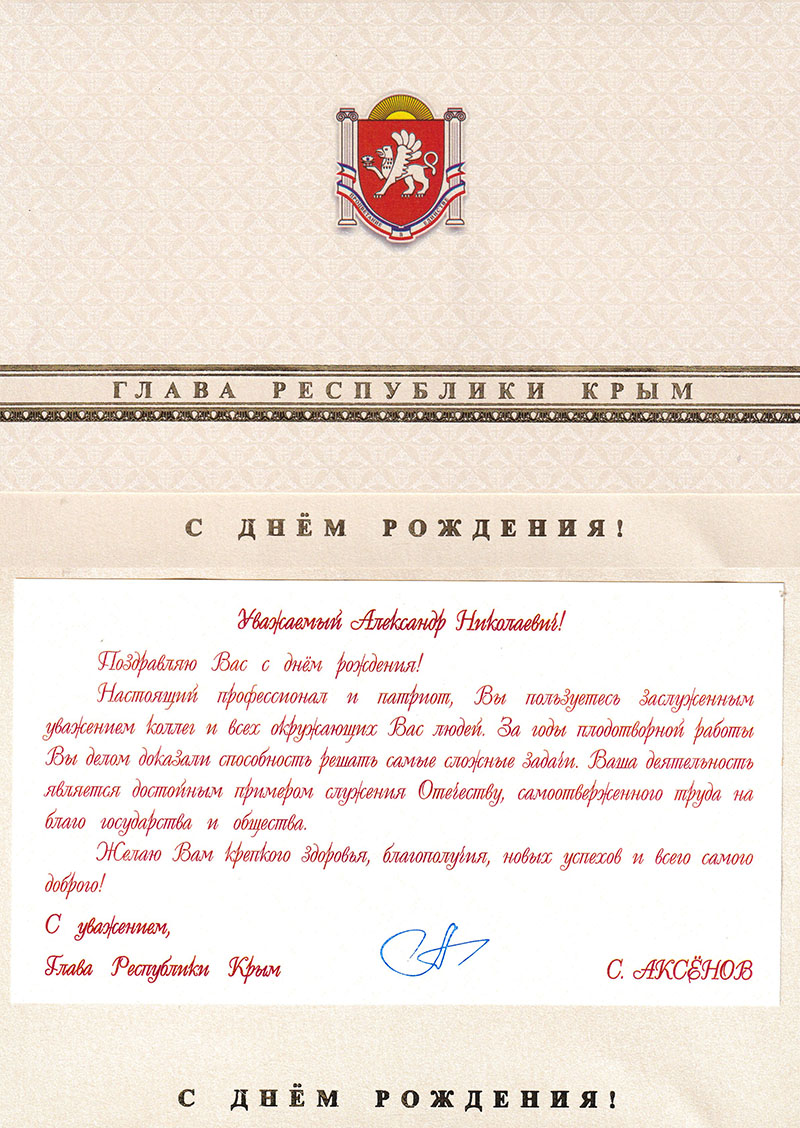 ПРОЦВЕТАНИЕ В ЕДИНСТВЕ
ГЛАВА РЕСПУБЛИКИ КРЫМ
С ДНЁМ РОЖДЕНИЯ!
Уважаемый Александр Николаевич!
Поздравляю Вас с днём рождения!
Настоящий профессионал и патриот, Вы пользуетесь заслуженным
уважением коллег и всех окружающих Вас людей. За годы плодотворной работы
Вы делом доказали способность решать самые сложные задачи. Ваша деятельность
является достойным примером служения Отечеству, самоотверженного труда на
благо государства и общества.
Желаю Вам крепкого здоровья, благополучия, новых успехов и всего самого
доброго!
С уважением,
Глава Республики Крым С. АКСЁНОВ
С ДНЁМ РОЖДЕНИЯ!